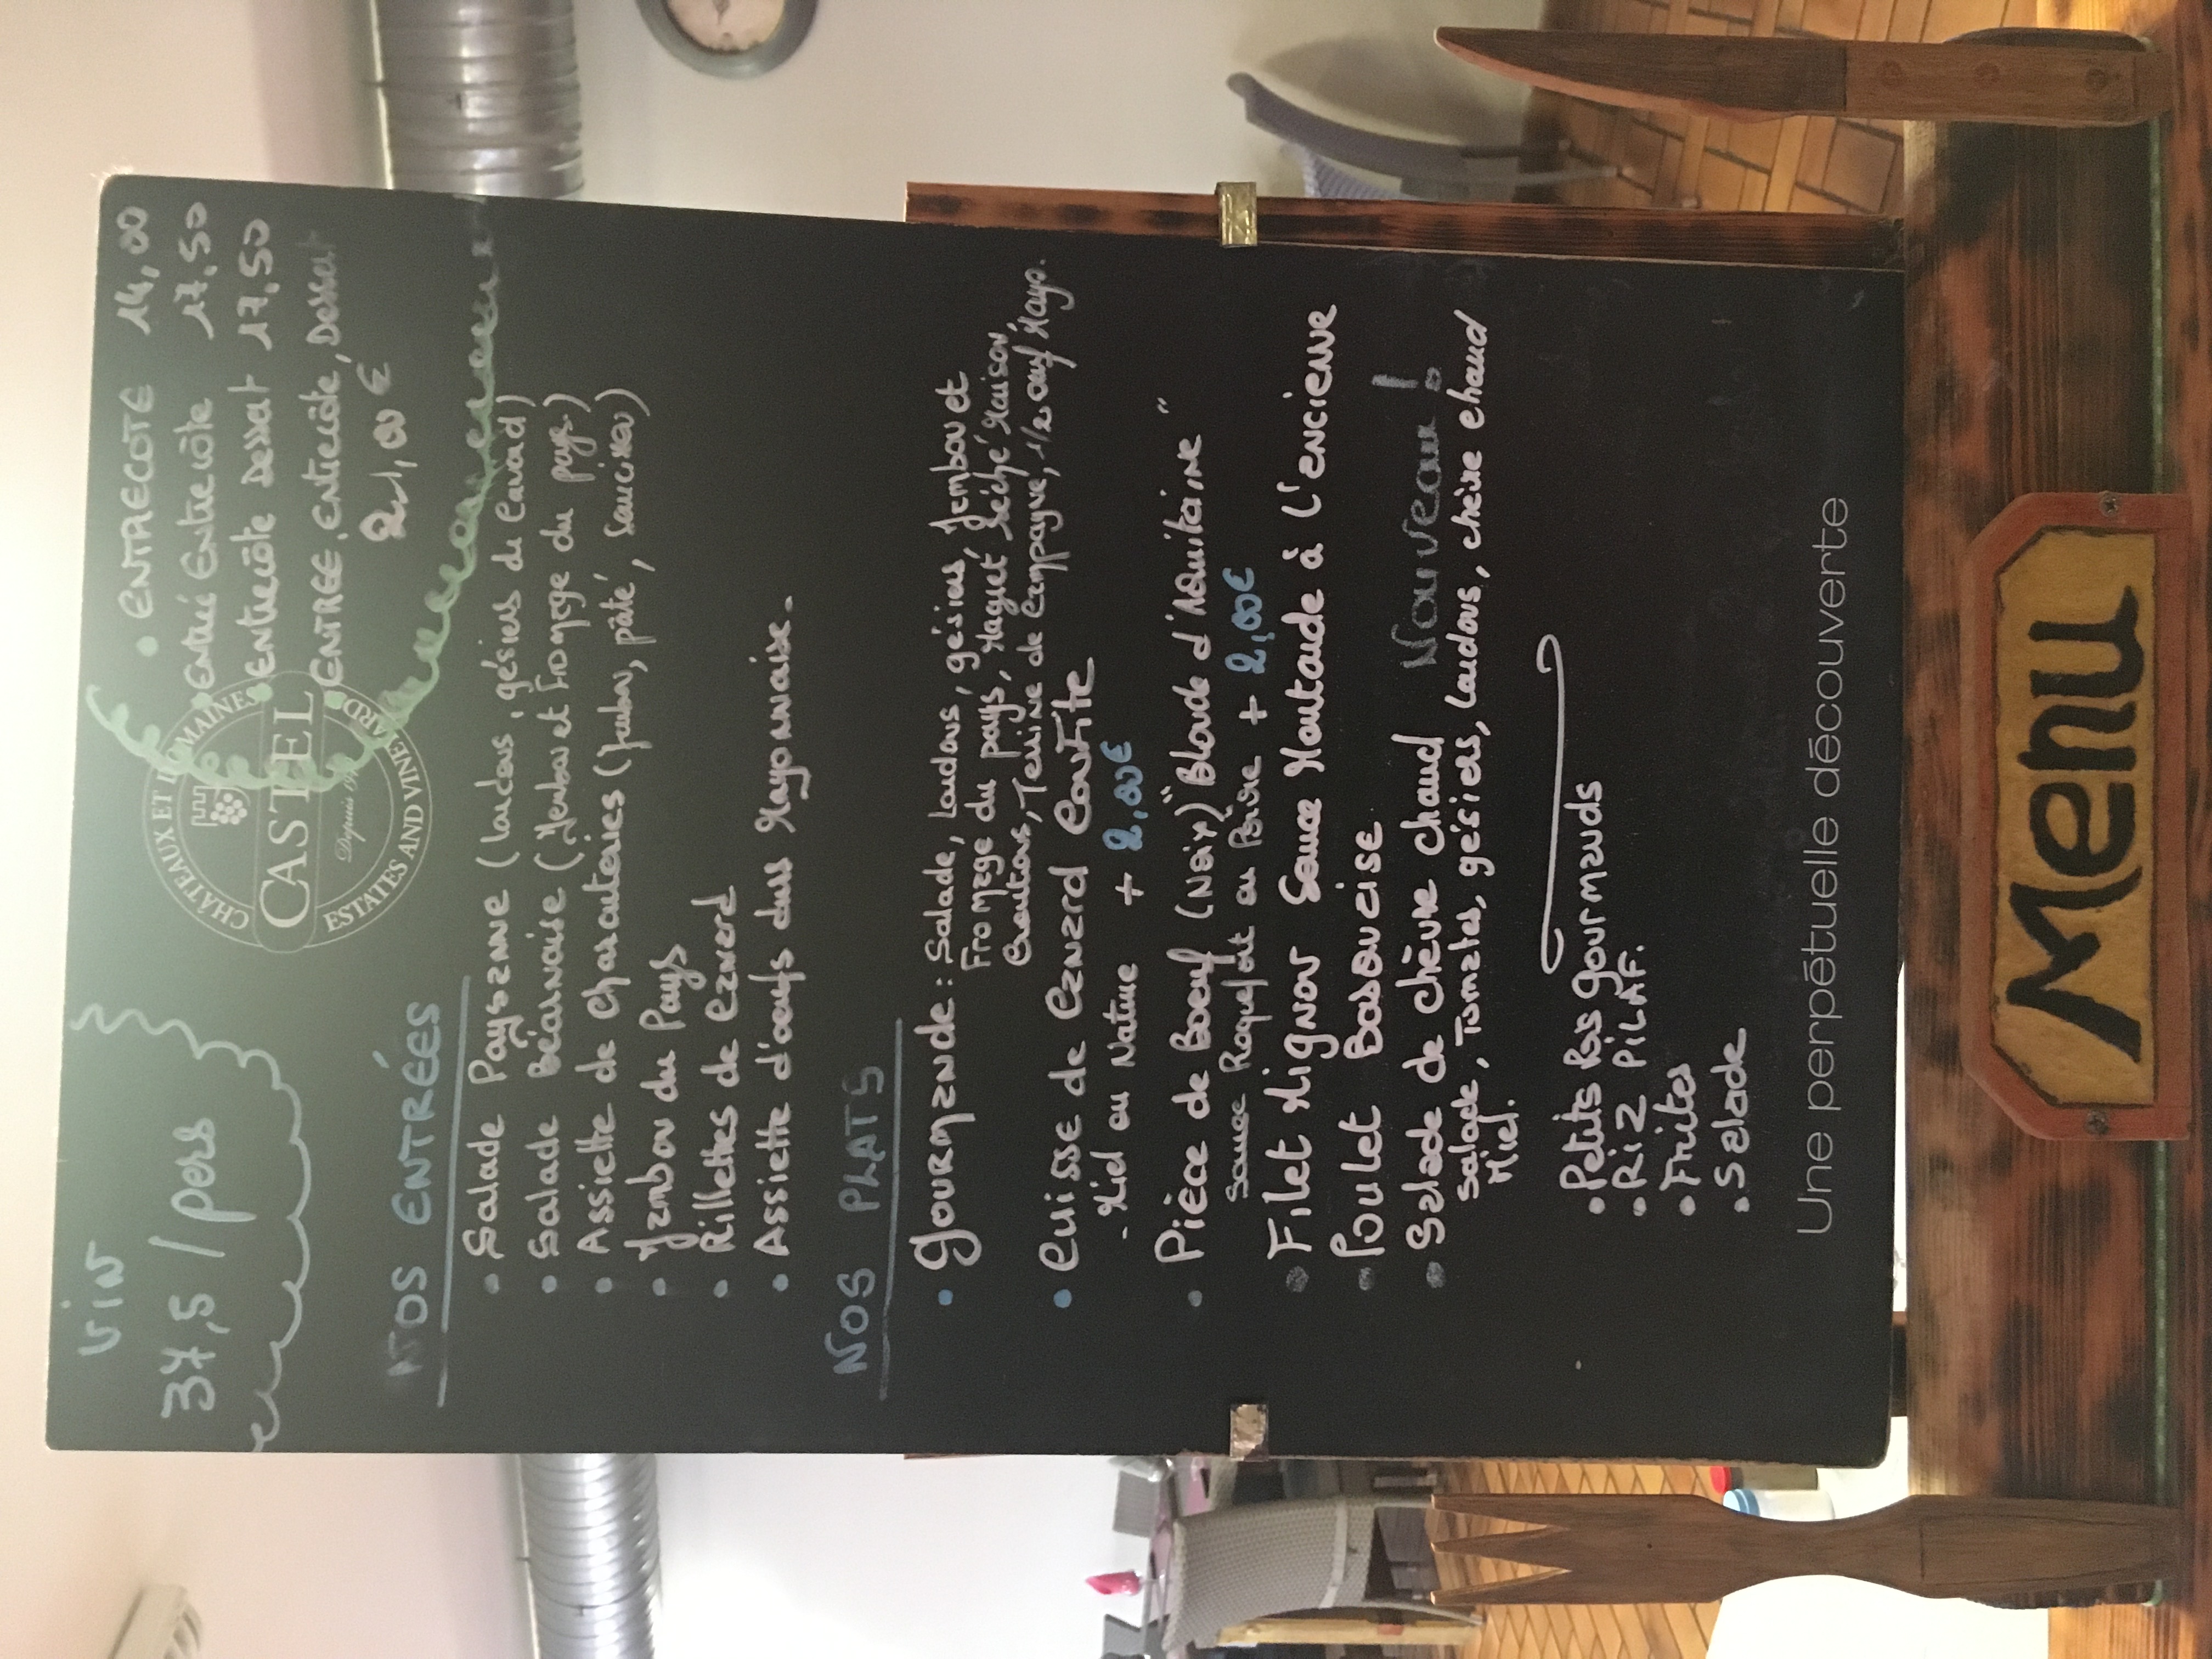 VIN
37,5 / pers
CHÂTEAUX ET DOMAINES
CASTEL
Depuis
ESTATES AND VINEYARDS
• ENTRECOTE 14,00
• ENTRÉ ENTRECÔTE 17,50
• ENTRECÔTE DESSERT 17,50
• ENTREE, ENTRECÔTE, DESSERT
21,00 €
NOS ENTRÉES
• Salade Paysanne (lardons, gésiers de Canard)
• Salade Béarnaise (Jambon et Fromage du pays)
• Assiette de charcuteries (jambon, pâté, saucisson)
• Jambon du Pays
• Rillettes de Canard
• Assiette d'oeufs durs Mayonnaise.
NOS PLATS
• Gourmande : Salade, Lardons, gésiers, Jambon et
Fromage du pays, Magret séché Maison,
Croutons, Terrine de Campagne, 1/2 oeuf Mayo.
• Cuisse de Canard Confite
- Miel ou Nature + 2,00€
• Pièce de Boeuf (Noix) "Blonde d'Aquitaine"
Sauce Roquefort ou Poivre + 2,00€
• Filet Mignon Sauce Moutarde à l'encienne
• Poulet Basquaise
• Salade de chèvre chaud Nouveau !
Salade, Tomates, gésiers, lardons, chèvre chaud
Miel.
• Petits Pois gourmands
• RIZ PILAF.
• Frites
• Salade
Une perpétuelle découverte
Menu